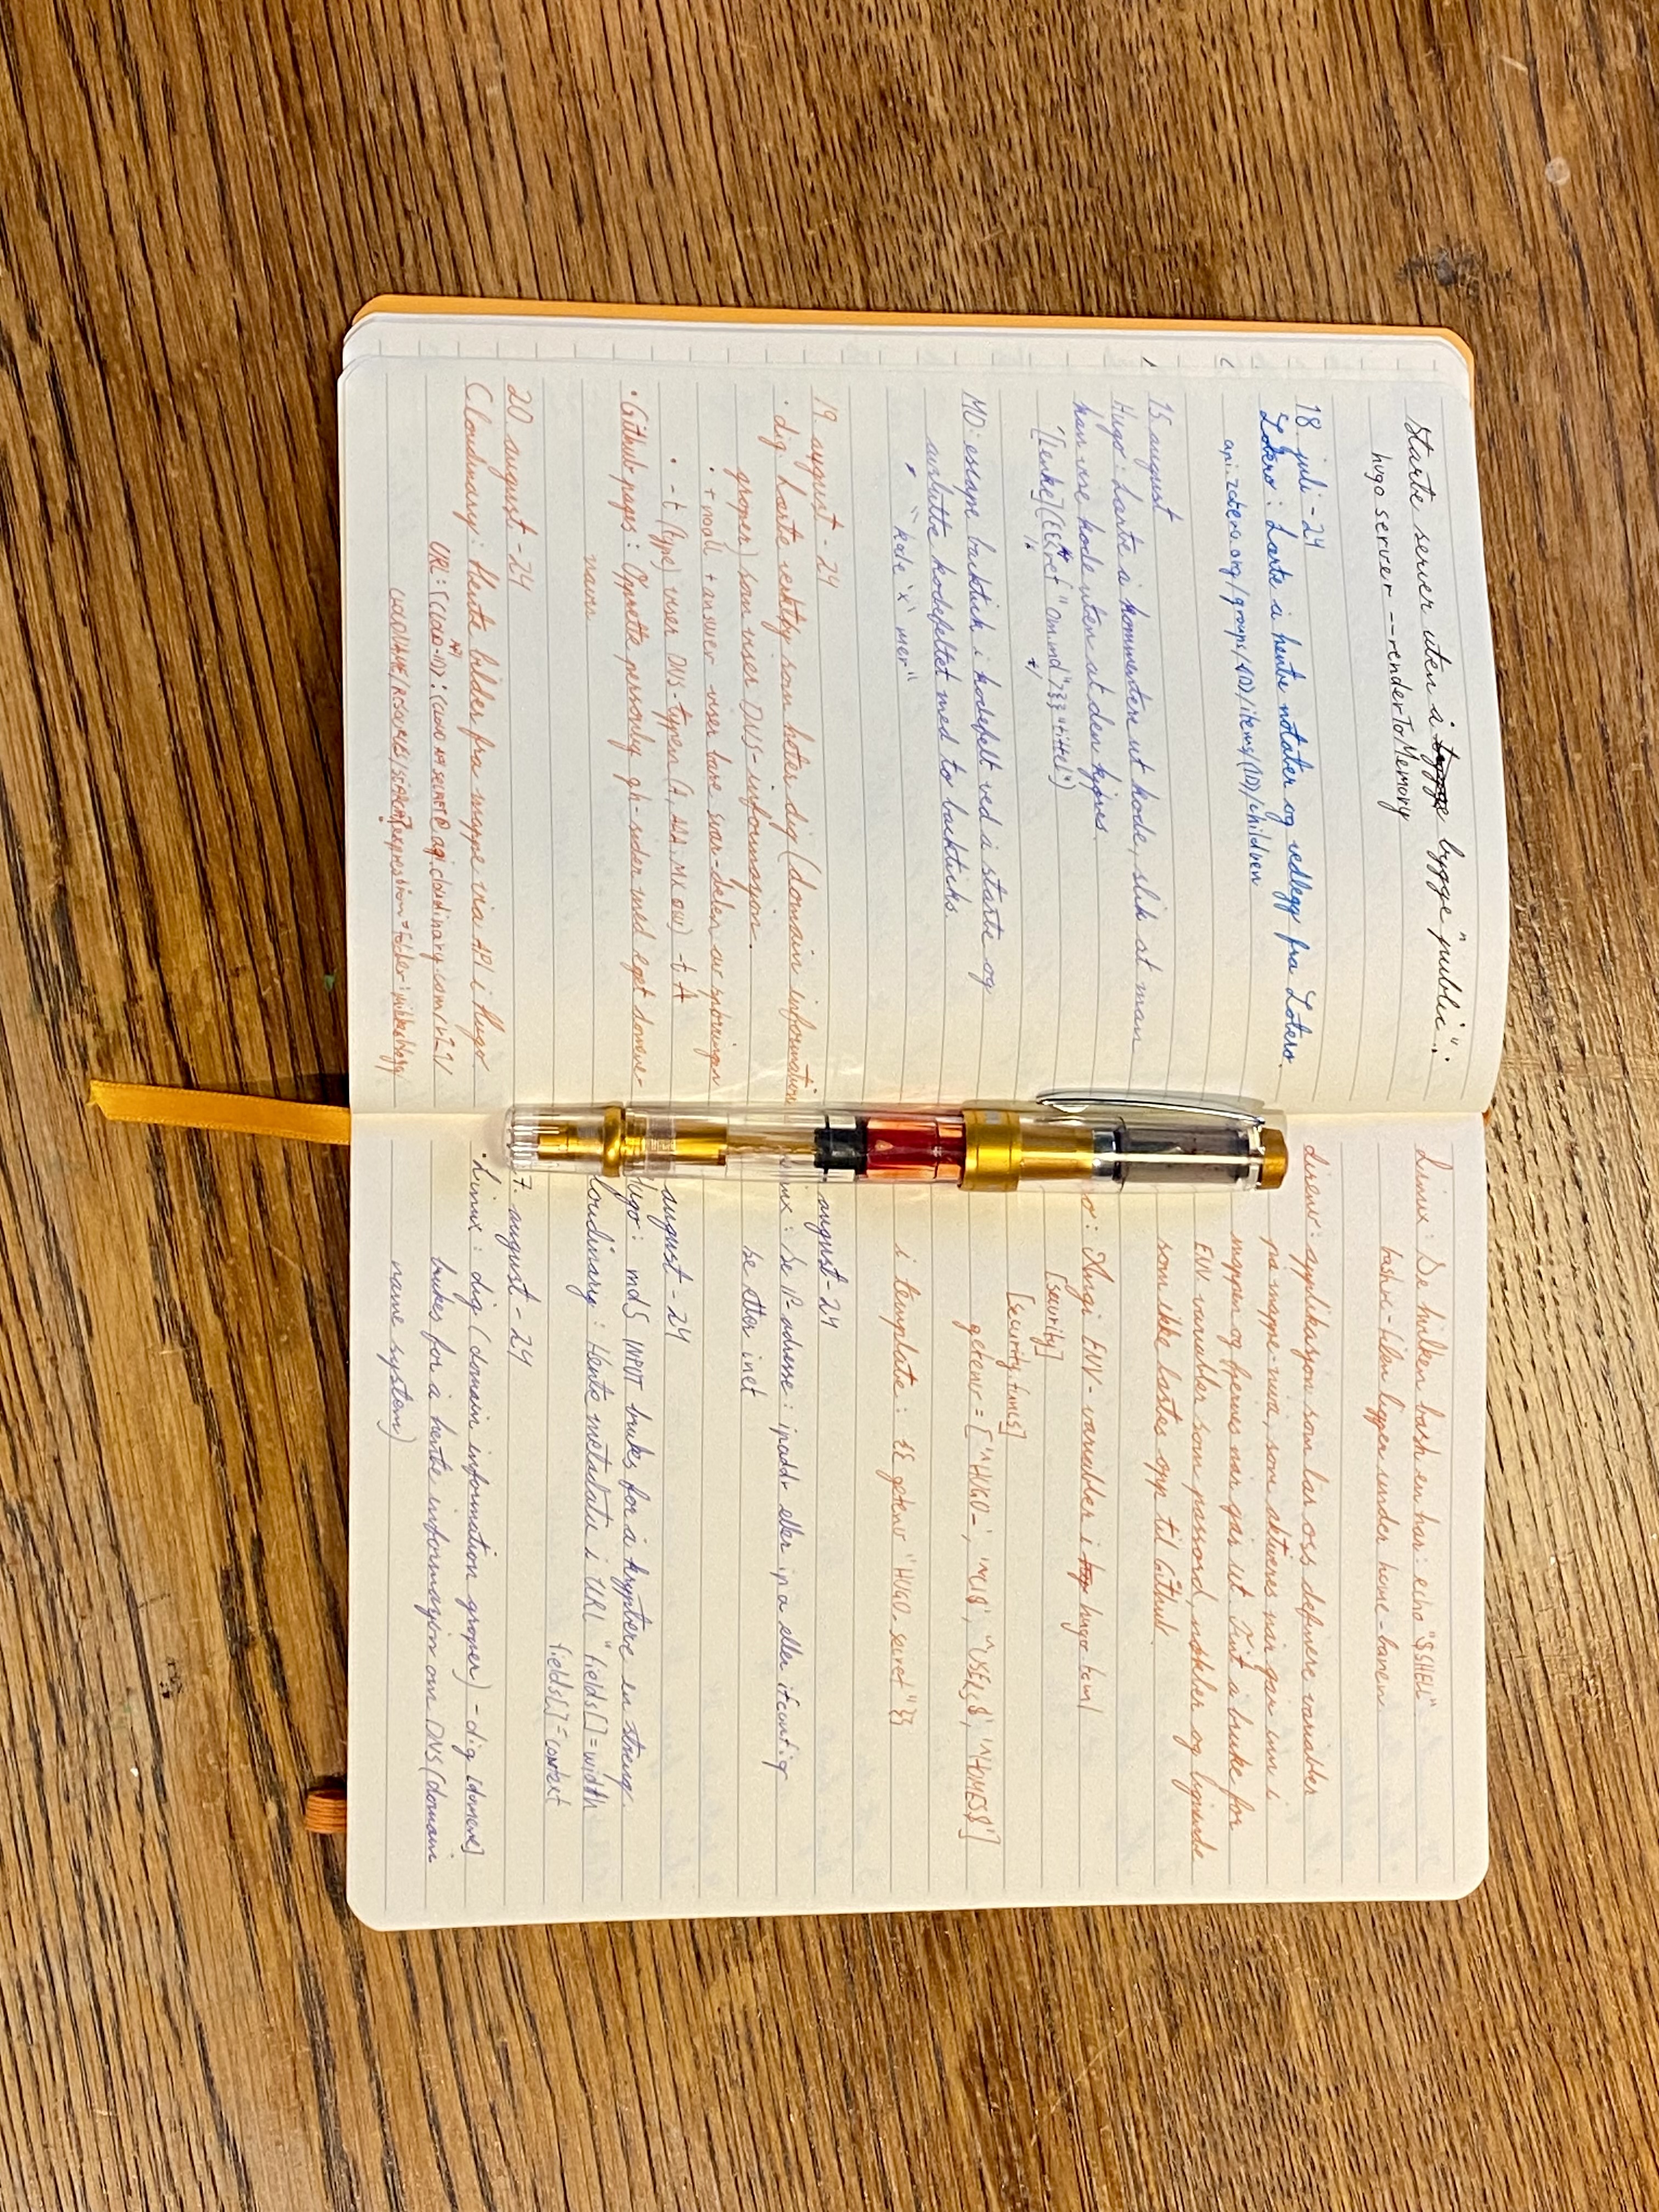 Starte server uten å bygge "public":
hugo server --renderToMemory
18. juli - 24
Zotero: Lærte å hente notater og vedlegg fra Zotero.
api.zotero.org/groups/(ID)/items/(ID)/children
15. august
Hugo: Lærte å kommentere ut kode, slik at man
kan vise kode uten at den kjøres.
MD: escape backtick i kodefelt ved å starte og
avslutte kodefeltet med to backticks.
`` kode `x` mer ``
19. august - 24
· dig: Lærte verktøy som heter dig (domain information
groper) som viser DNS-informasjon.
· +noall +answer viser bare svar-delen av spørringen
· -t (type) viser DNS-typen (A, AAA, MX osv) -t A
· Github pages: Opprette personlig gh-sider med eget domene-
navn
20. august - 24
Cloudinary: Hente bilder fra mappe via API i Hugo
Linux: Se hvilken bash en har: echo "$SHELL"
bashrc-filen ligger under home-banen
direnv: applikasjon som lar oss definere variabler
på mappe-nivå, som aktiveres når går inn i
mappen og fjernes når går ut. Fint å bruke for
ENV variabler som passord, nøkler og lignende
som ikke lastes opp til Github.
Angi ENV-variabler i hugo.toml
[security]
[security.funcs]
getenv = ['^HUGO_', '^CI$', '^USER$', '^HOME$']
i template: {{ getenv "HUGO_secret" }}
august - 24
Se IP-adresse: ipaddr eller ip a eller ifconfig
Se etter inet
august - 24
md5 INPUT brukes for å kryptere en streng.
Hente metadata i URL "fields[]=width
fields[]=context
7. august - 24
· Linux: dig (domain information groper) - dig [domene]
brukes for å hente informasjon om DNS (domain
name system)